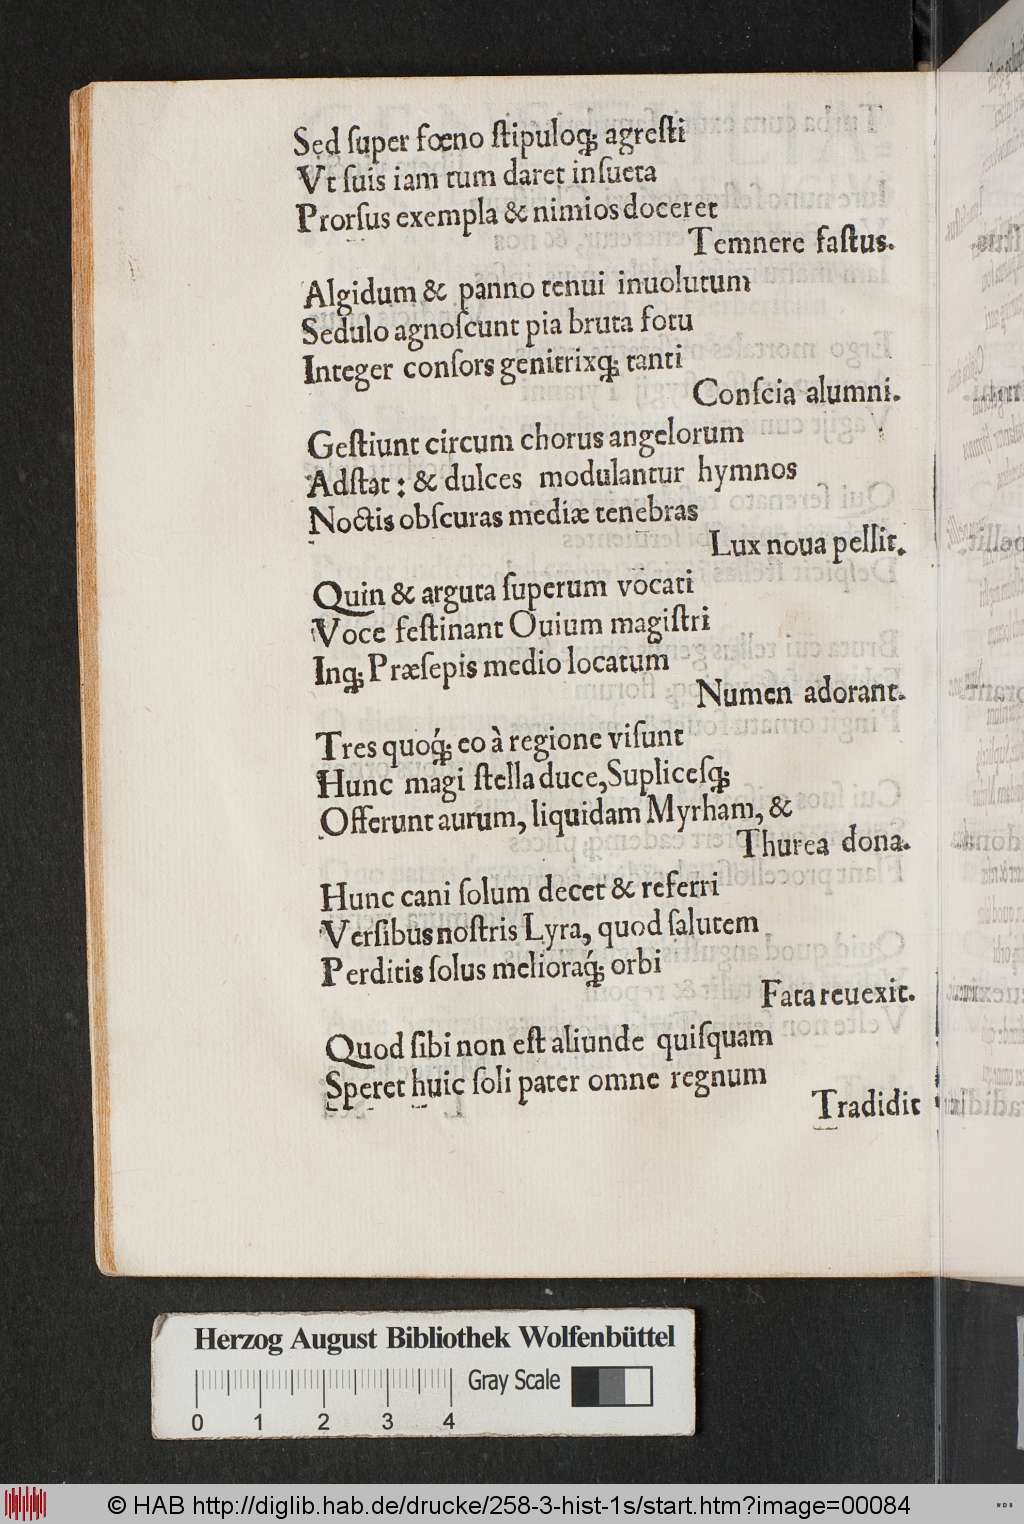 Sed ſuper fœno ſtipuloq; agreſti
Vt ſuis iam tum daret inſueta
Prorſus exempla & nimios doceret
Temnere faſtus.
Algidum & panno tenui inuolutum
Sedulo agnoſcunt pia bruta fotu
Integer conſors genitrixq; tanti
Conſcia alumni.
Geſtiunt circum chorus angelorum
Adſtat : & dulces modulantur hymnos
Noctis obſcuras mediæ tenebras
Lux noua pellit.
Quin & arguta ſuperum vocati
Voce feſtinant Ouium magiſtri
Inq; Præſepis medio locatum
Numen adorant.
Tres quoq́; eo à regione viſunt
Hunc magi ſtella duce, Supliceſq;
Offerunt aurum, liquidam Myrham, &
Thurea dona.
Hunc cani ſolum decet & referri
Verſibus noſtris Lyra, quod ſalutem
Perditis ſolus melioraq́; orbi
Fata reuexit.
Quod ſibi non eſt aliunde quiſquam
Speret huic ſoli pater omne regnum
Tradidit
Herzog August Bibliothek Wolfenbüttel
Gray Scale
0 1 2 3 4
© HAB http://diglib.hab.de/drucke/258-3-hist-1s/start.htm?image=00084